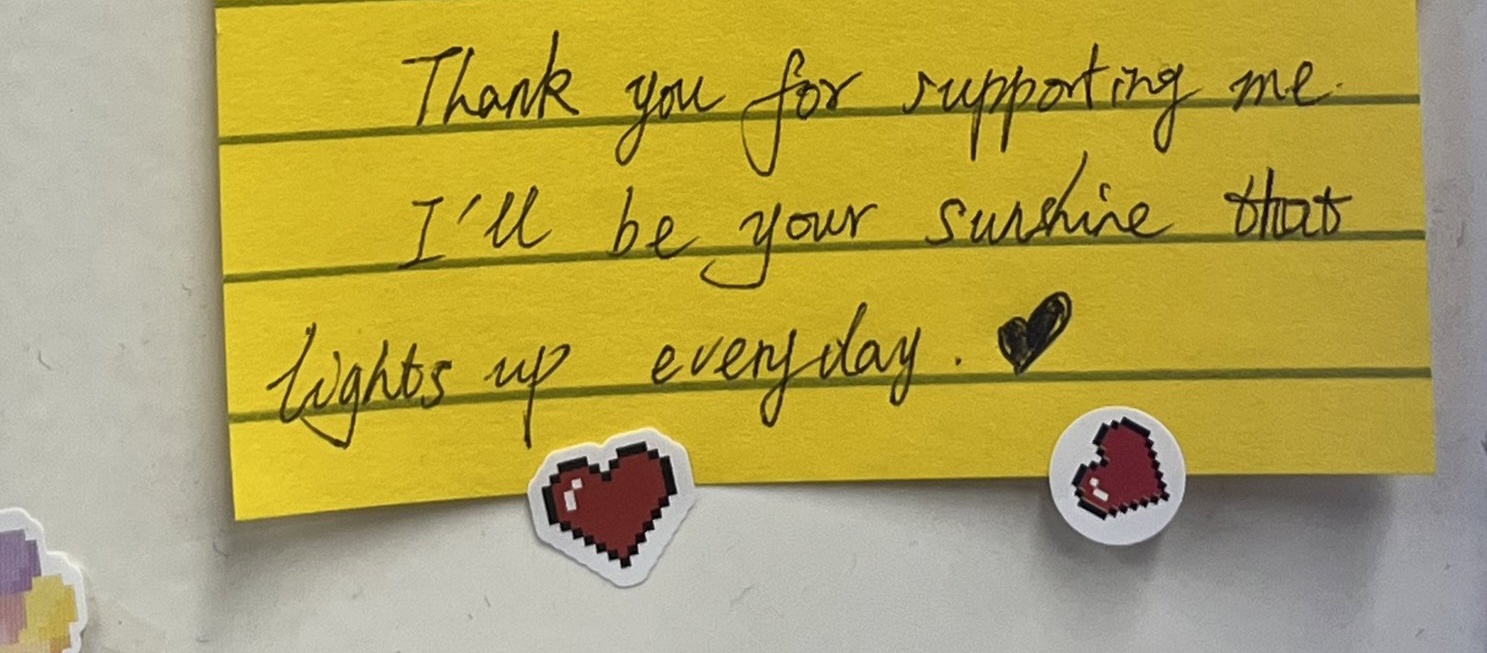 Thank you for supporting me.
I'll be your sunshine that
lights up everyday. ♥